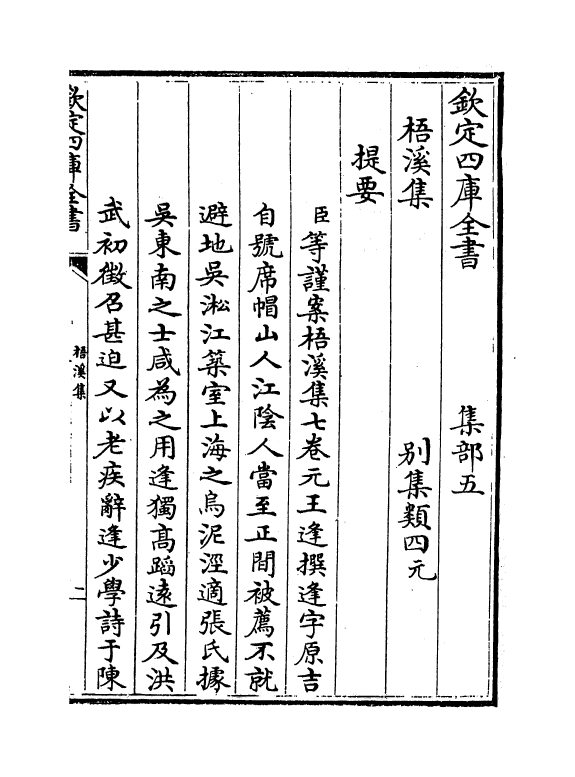 欽定四庫全書　集部五
梧溪集　别集類四元
提要
臣等謹案梧溪集七卷元王逢撰逢字原吉
自號席帽山人江陰人當至正間被薦不就
避地吳淞江築室上海之烏泥涇適張氏據
吳東南之士咸為之用逢獨高蹈遠引及洪
武初徵召甚迫又以老疾辭逢少學詩于陳
欽定四庫全書
梧溪集
二